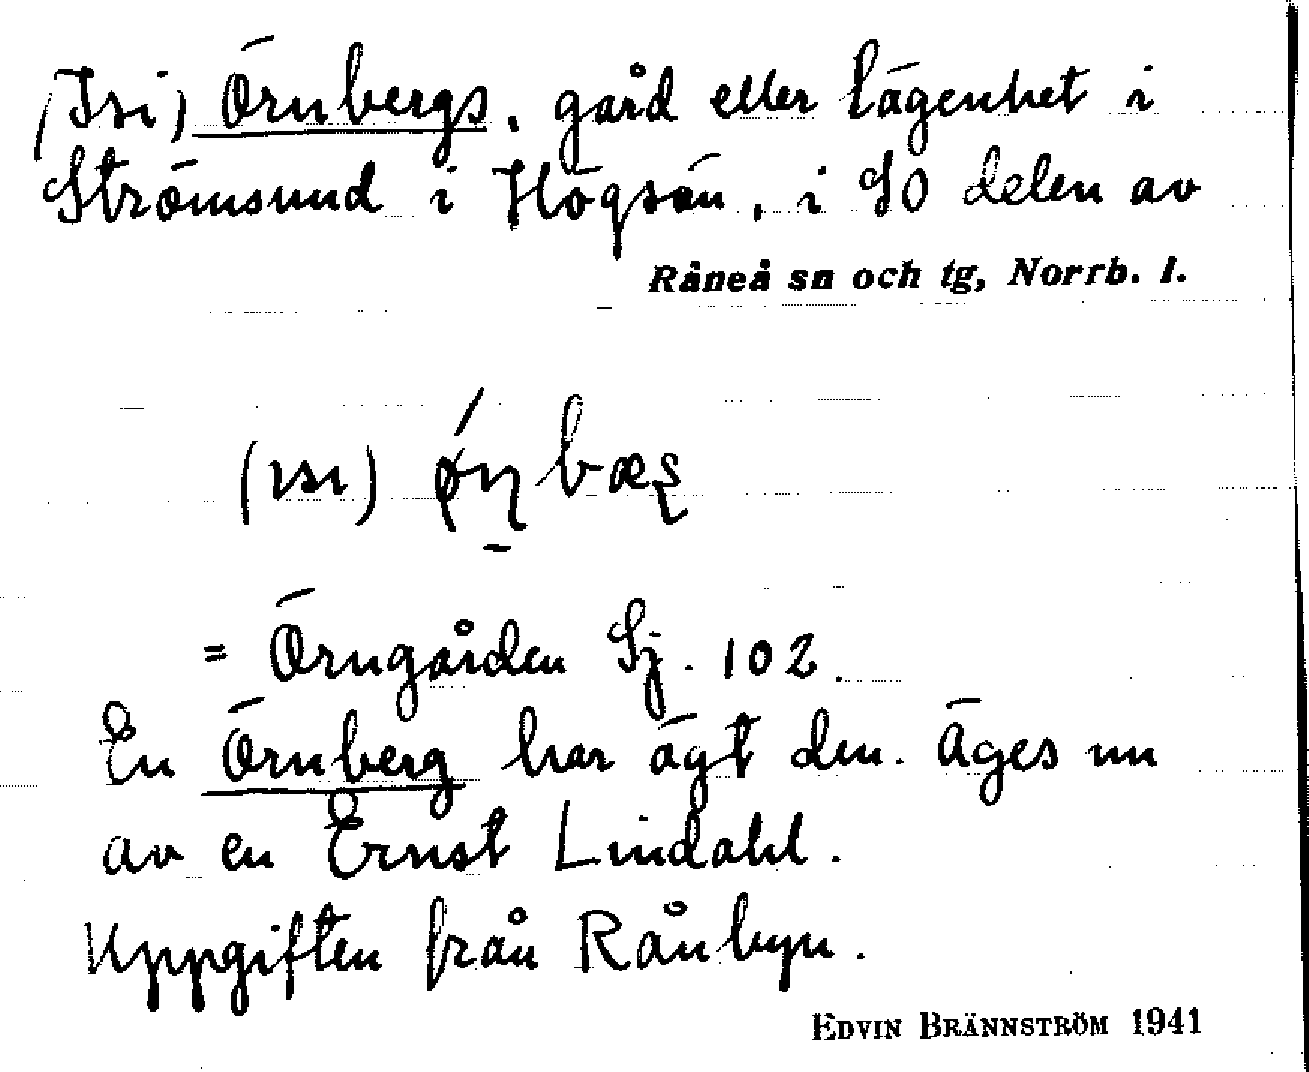 (Isi) Örnbergs, gård eller lägenhet i
Strömsund i Högsön, i SO delen av
Råneå sn och tg, Norrb. l.
(ɪsɪ) ǿɳbæʂ
= Örngården Sj. 102.
En Örnberg har ägt den. Äges nu
av en Ernst Lindahl.
Uppgiften från Rånbyn.
EDVIN BRÄNNSTRÖM 1941